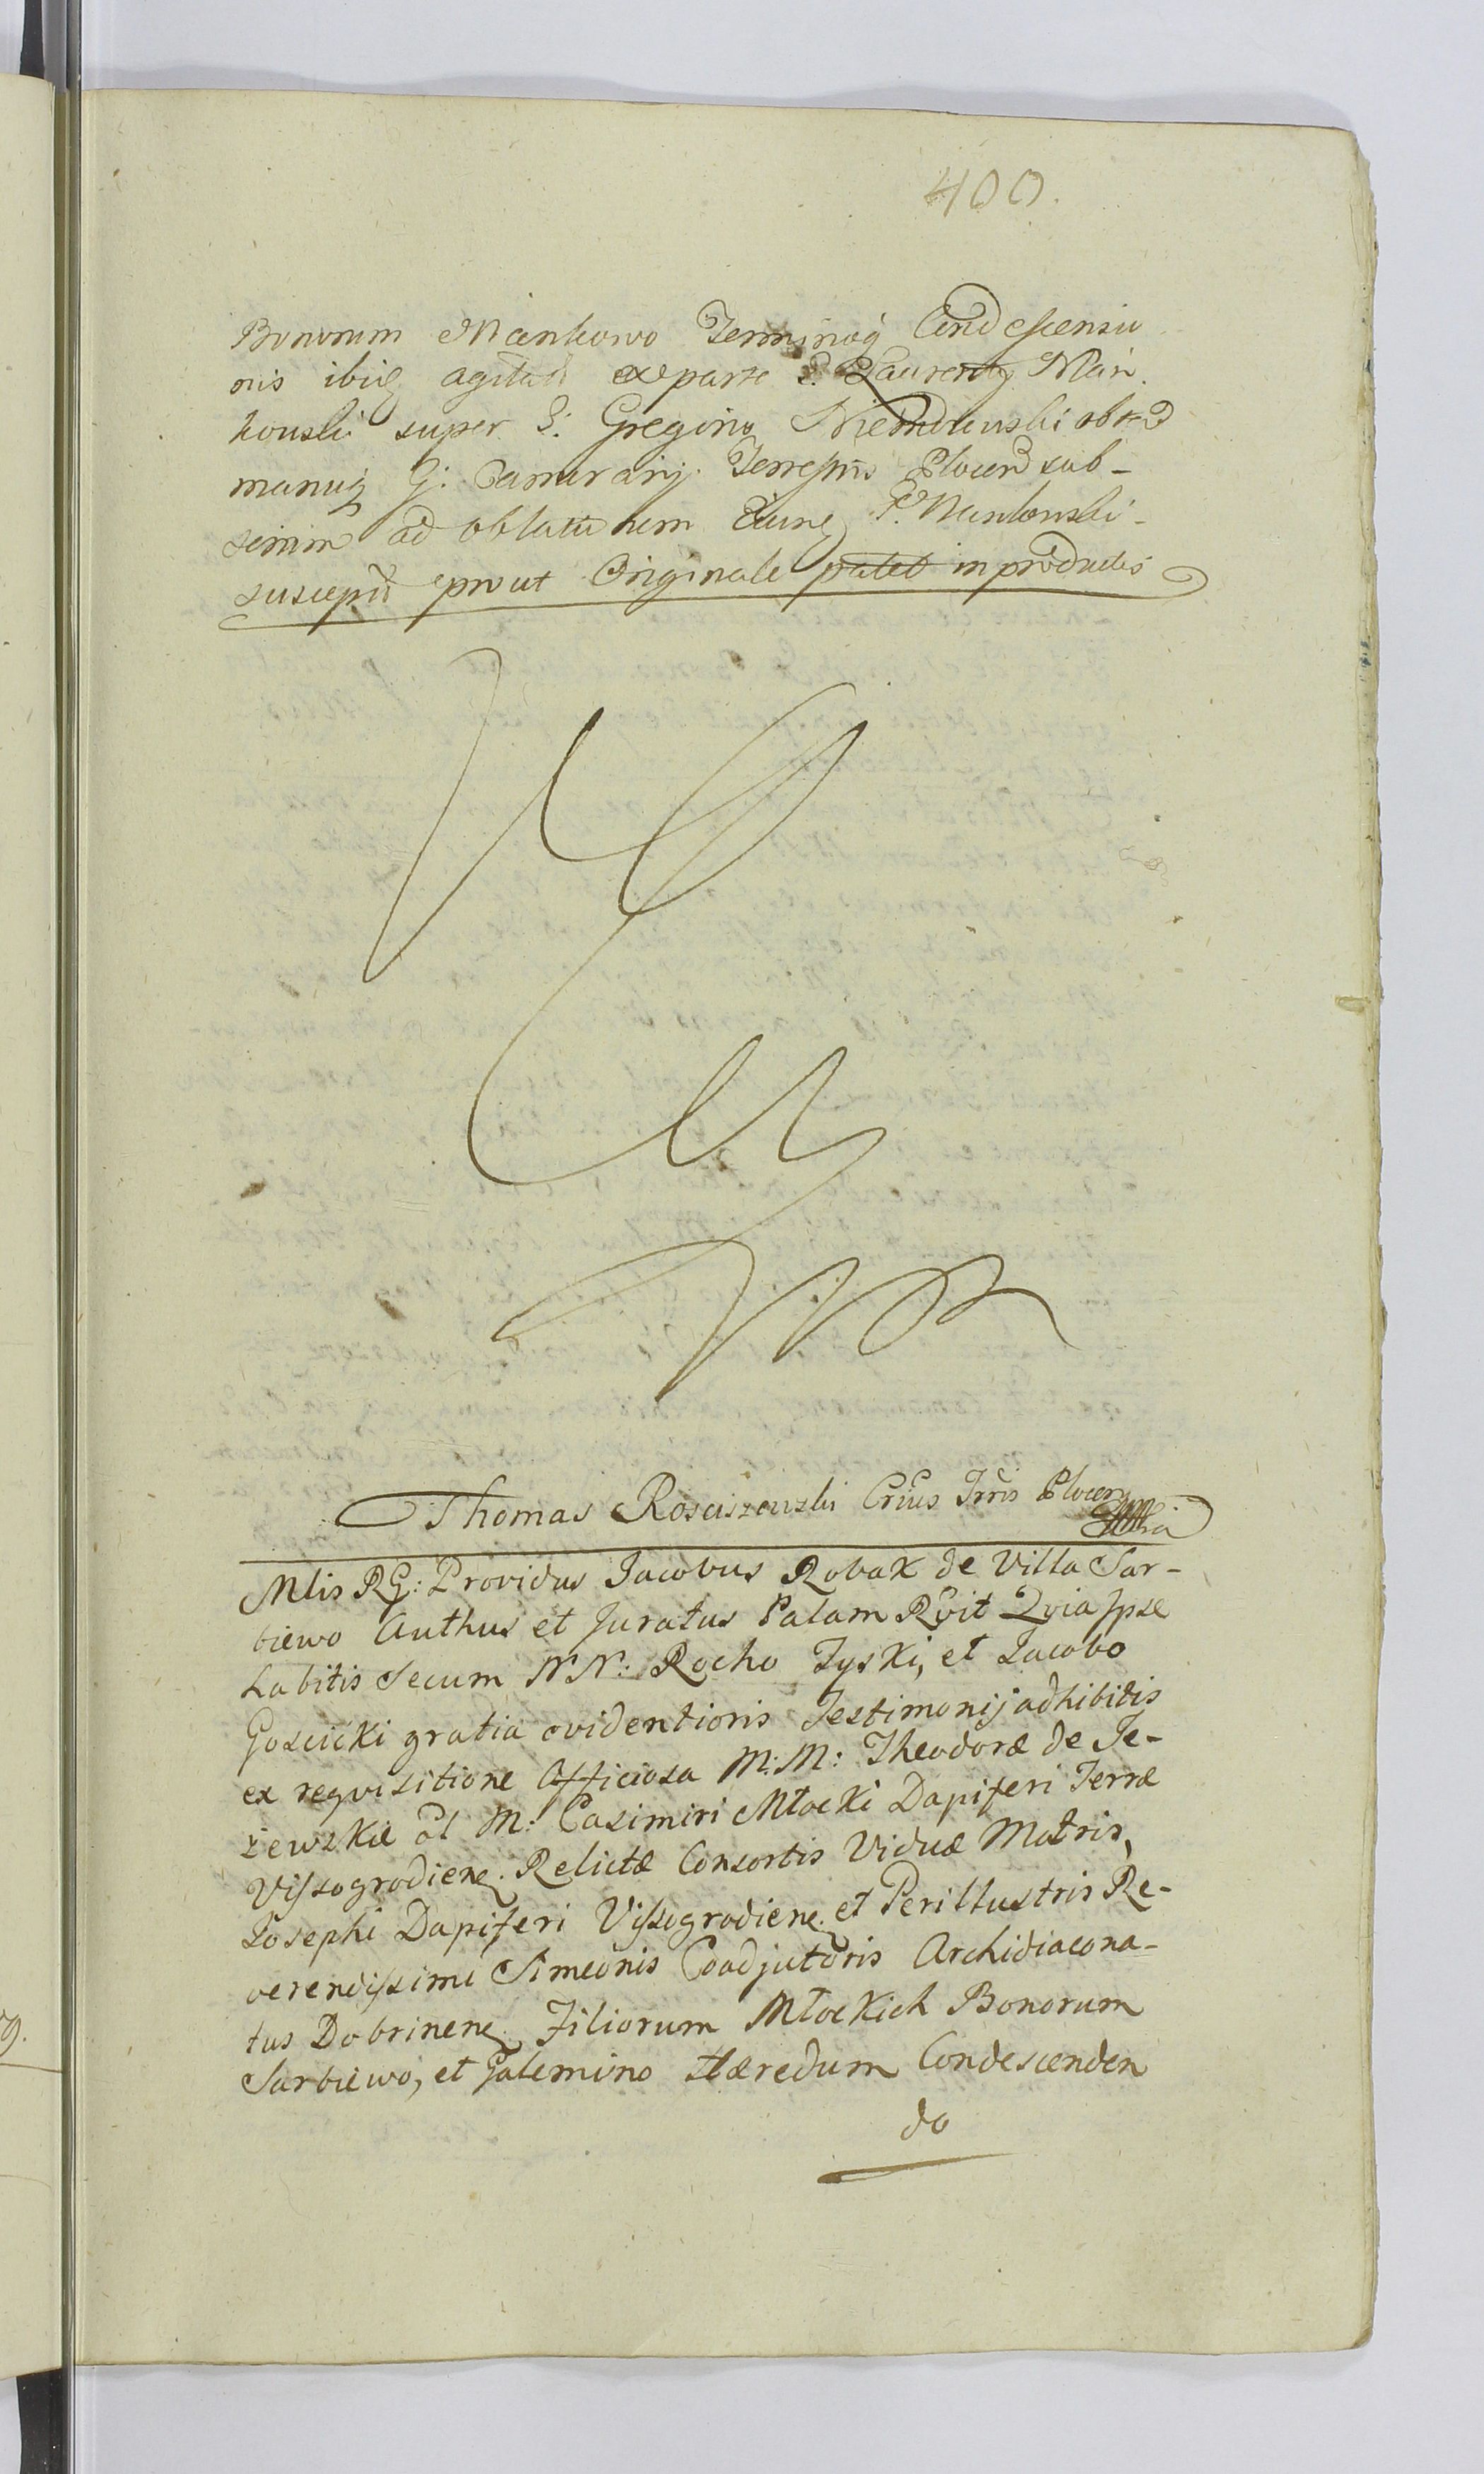 400.
Bonorum Mankowo Terminoq̃ Condescensio
nis ibiq̃ agitati ex parte G. Laurentÿ Man
kowski super G. Gregorio
manuq̃ G. Camerarij Terrestris Plocen sub-
ad oblatu nem eiunq̃ G. Mankowski
suscepit prout Originale patet in productis
Thomas Rosciszewski Crius Trris Plocen
Mlis RG: Providus Jacobus Robak de Villa Sar-
biewo Authus et Juratus Palam Rvit Qvia Ipse
habitis Secum NN: Rocho Tyski, et Jacobo
Goscicki gratia evidentioris Testimonij adhibitis
ex reqvisitione Officiosa M:M: Theodoræ de Je-
żewskie ol M: Casimiri Młocki Dapiferi Terræ
Vissogrodienę. Relictæ Consortis Viduæ Matris,
Josephi Dapiferi Vissogrodienę. et Perillustris Re-
verendissimi Simeonis Coadjutoris Archidiacona-
tus Dobrinenę. Filiorum Młockich Bonorum
Sarbiewo, et Galemino Hæredum Condescenden
do